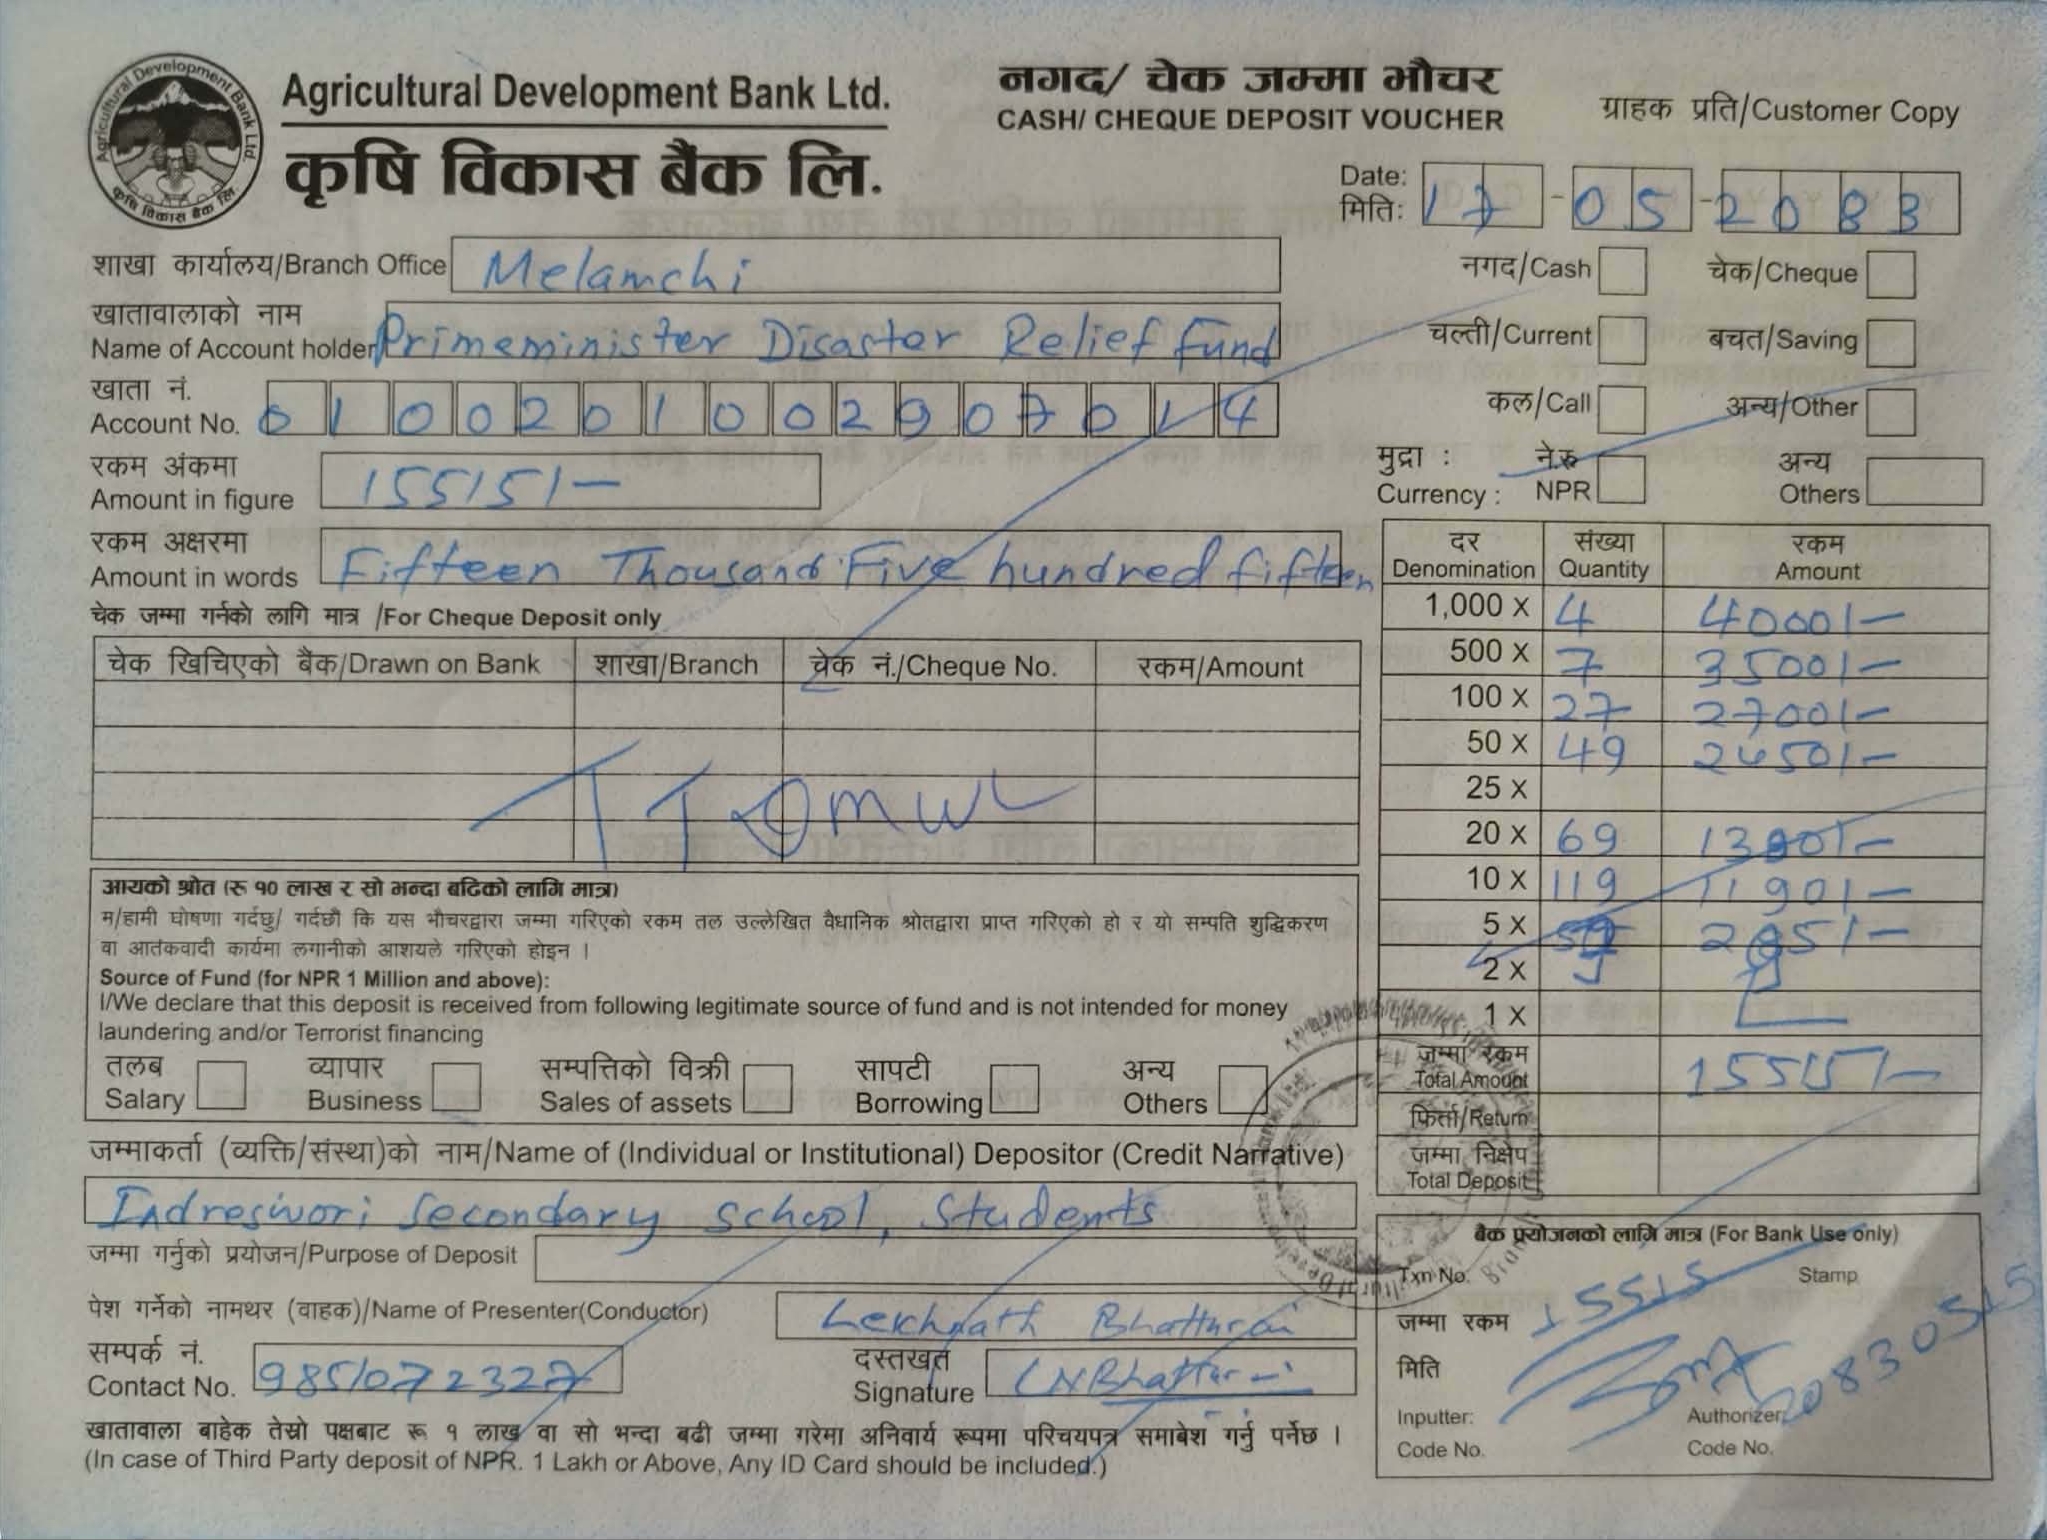 Agricultural Development Bank Ltd.
कृषि विकास बैंक लि.
नगद/ चेक जम्मा भौचर
CASH/ CHEQUE DEPOSIT VOUCHER
ग्राहक प्रति/Customer Copy
Date:
मिति: 17-05-2083
शाखा कार्यालय/Branch Office Melamchi
नगद/Cash चेक/Cheque
खातावालाको नाम
Name of Account holder Primeminister Disaster Relief Fund
चल्ती/Current बचत/Saving
खाता नं.
Account No. 0100201002907014
कल/Call अन्य/Other
रकम अंकमा
Amount in figure 15515/-
मुद्रा : ने.रु अन्य
Currency : NPR Others
रकम अक्षरमा
Amount in words Fifteen Thousand Five hundred fifteen
दर संख्या रकम
Denomination Quantity Amount
1,000 X 4 4000/-
500 X 7 3500/-
100 X 27 2700/-
50 X 49 2450/-
25 X
20 X 69 1380/-
10 X 119 1190/-
5 X
2 X
1 X
जम्मा रकम
Total Amount 15515/-
फिर्ता/Return
जम्मा निक्षेप
Total Deposit
चेक जम्मा गर्नको लागि मात्र /For Cheque Deposit only
चेक खिचिएको बैंक/Drawn on Bank शाखा/Branch चेक नं./Cheque No. रकम/Amount
आयको श्रोत (रु १० लाख र सो भन्दा बढिको लागि मात्र)
म/हामी घोषणा गर्दछु/ गर्दछौं कि यस भौचरद्वारा जम्मा गरिएको रकम तल उल्लेखित वैधानिक श्रोतद्वारा प्राप्त गरिएको हो र यो सम्पति शुद्धिकरण
वा आतंकवादी कार्यमा लगानीको आशयले गरिएको होइन ।
Source of Fund (for NPR 1 Million and above):
I/We declare that this deposit is received from following legitimate source of fund and is not intended for money
laundering and/or Terrorist financing
तलब व्यापार सम्पत्तिको विक्री सापटी अन्य
Salary Business Sales of assets Borrowing Others
जम्माकर्ता (व्यक्ति/संस्था)को नाम/Name of (Individual or Institutional) Depositor (Credit Narrative)
Indreswori Secondary School, Students
जम्मा गर्नुको प्रयोजन/Purpose of Deposit
पेश गर्नेको नामथर (वाहक)/Name of Presenter(Conductor) Lekhnath Bhattarai
सम्पर्क नं.
Contact No. 9851072327
दस्तखत
Signature LNBhattarai
खातावाला बाहेक तेस्रो पक्षबाट रू १ लाख वा सो भन्दा बढी जम्मा गरेमा अनिवार्य रूपमा परिचयपत्र समाबेश गर्नु पर्नेछ ।
(In case of Third Party deposit of NPR. 1 Lakh or Above, Any ID Card should be included.)
बैंक प्रयोजनको लागि मात्र (For Bank Use only)
Txn No. Stamp
जम्मा रकम 15515
मिति 20830515
Inputter: Authorizer:
Code No. Code No.